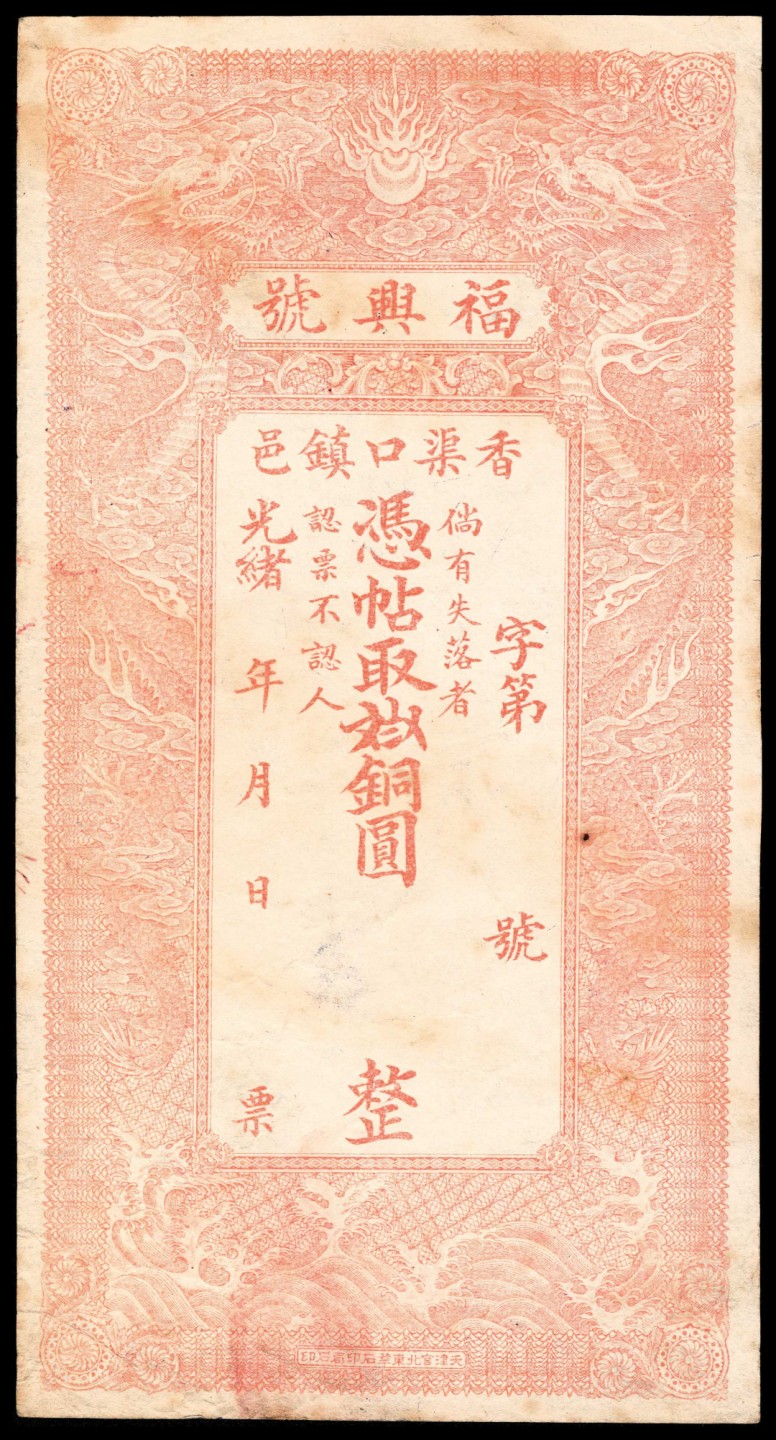 福興號
香渠口鎮邑
字第 號
倘有失落者
憑帖取銅圓 整
認票不認人
光緒 年 月 日 票
天津宮北東華石印局印